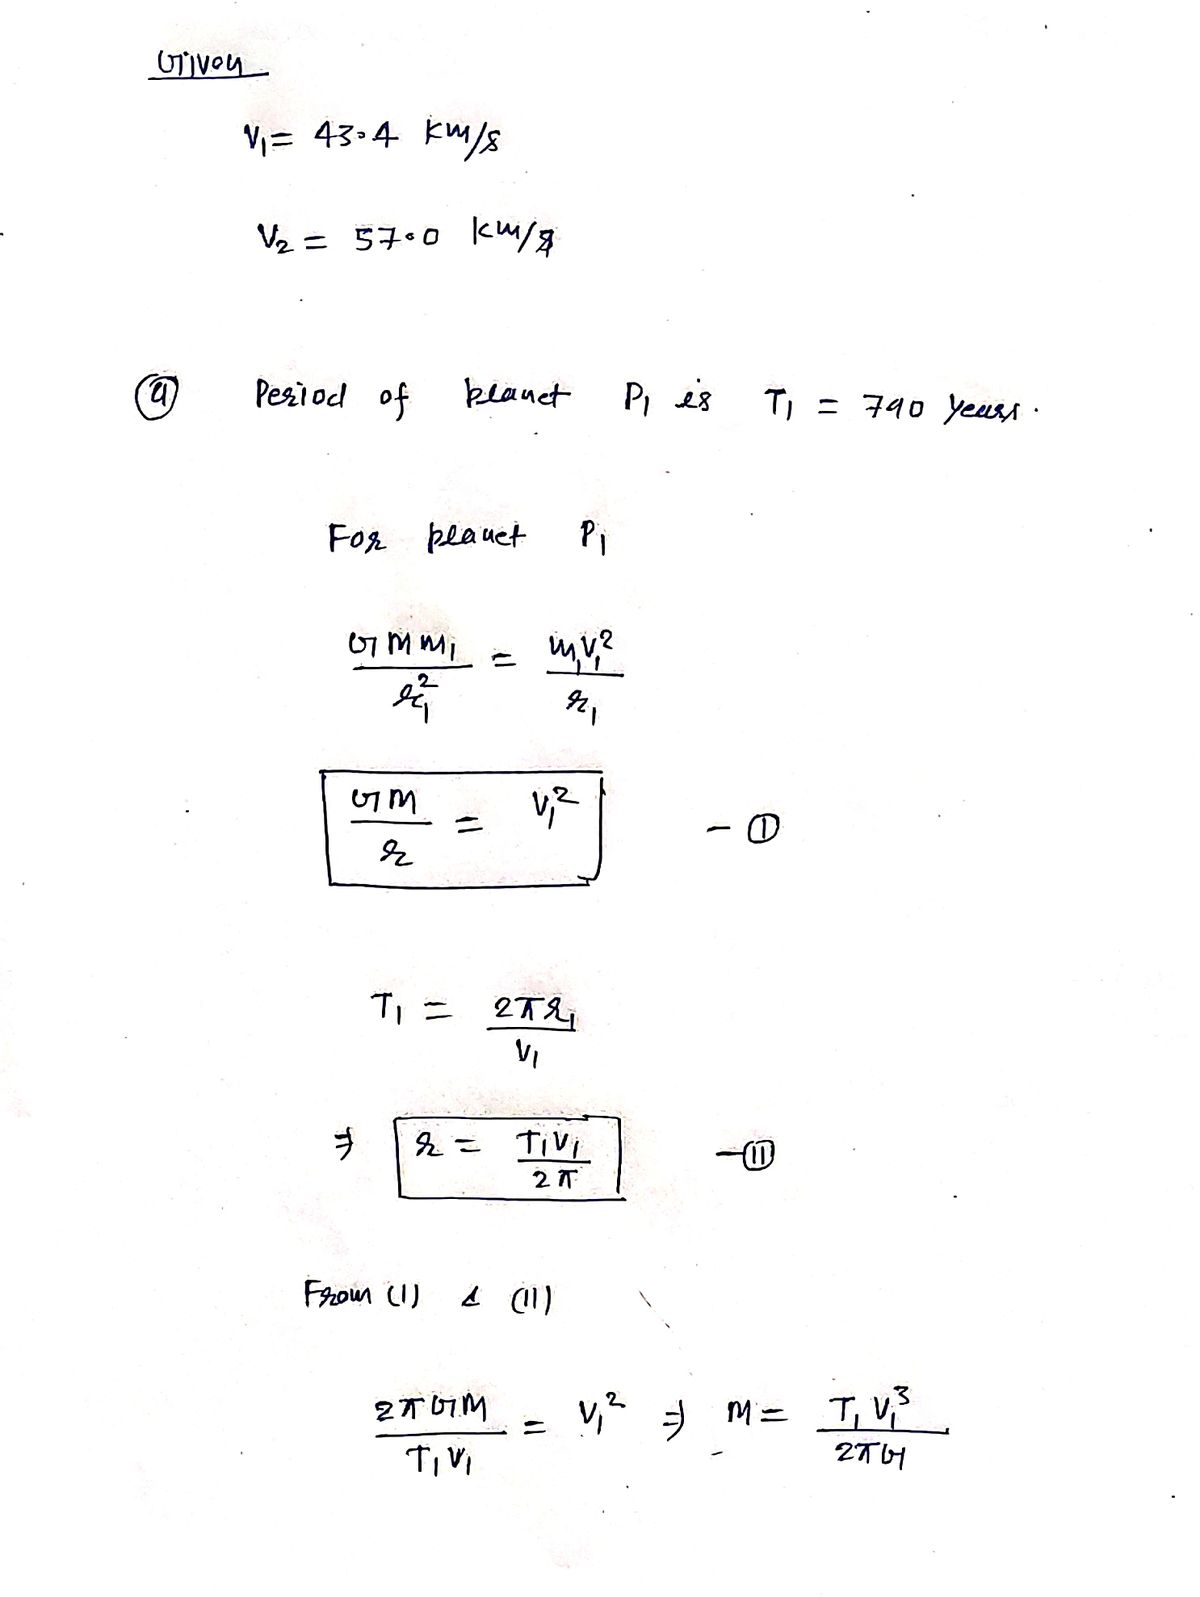 Given
V₁ = 43.4 km/s
V₂ = 57.0 km/s
(a) Period of planet P₁ is T₁ = 790 years.
For planet P₁
GMm₁/r₁² = m₁V₁²/r₁
GM/r = V₁² - (I)
T₁ = 2πr₁/V₁
⇒ r = T₁V₁/2π - (II)
From (I) & (II)
2πGM/T₁V₁ = V₁² ⇒ M = T₁V₁³/2πG